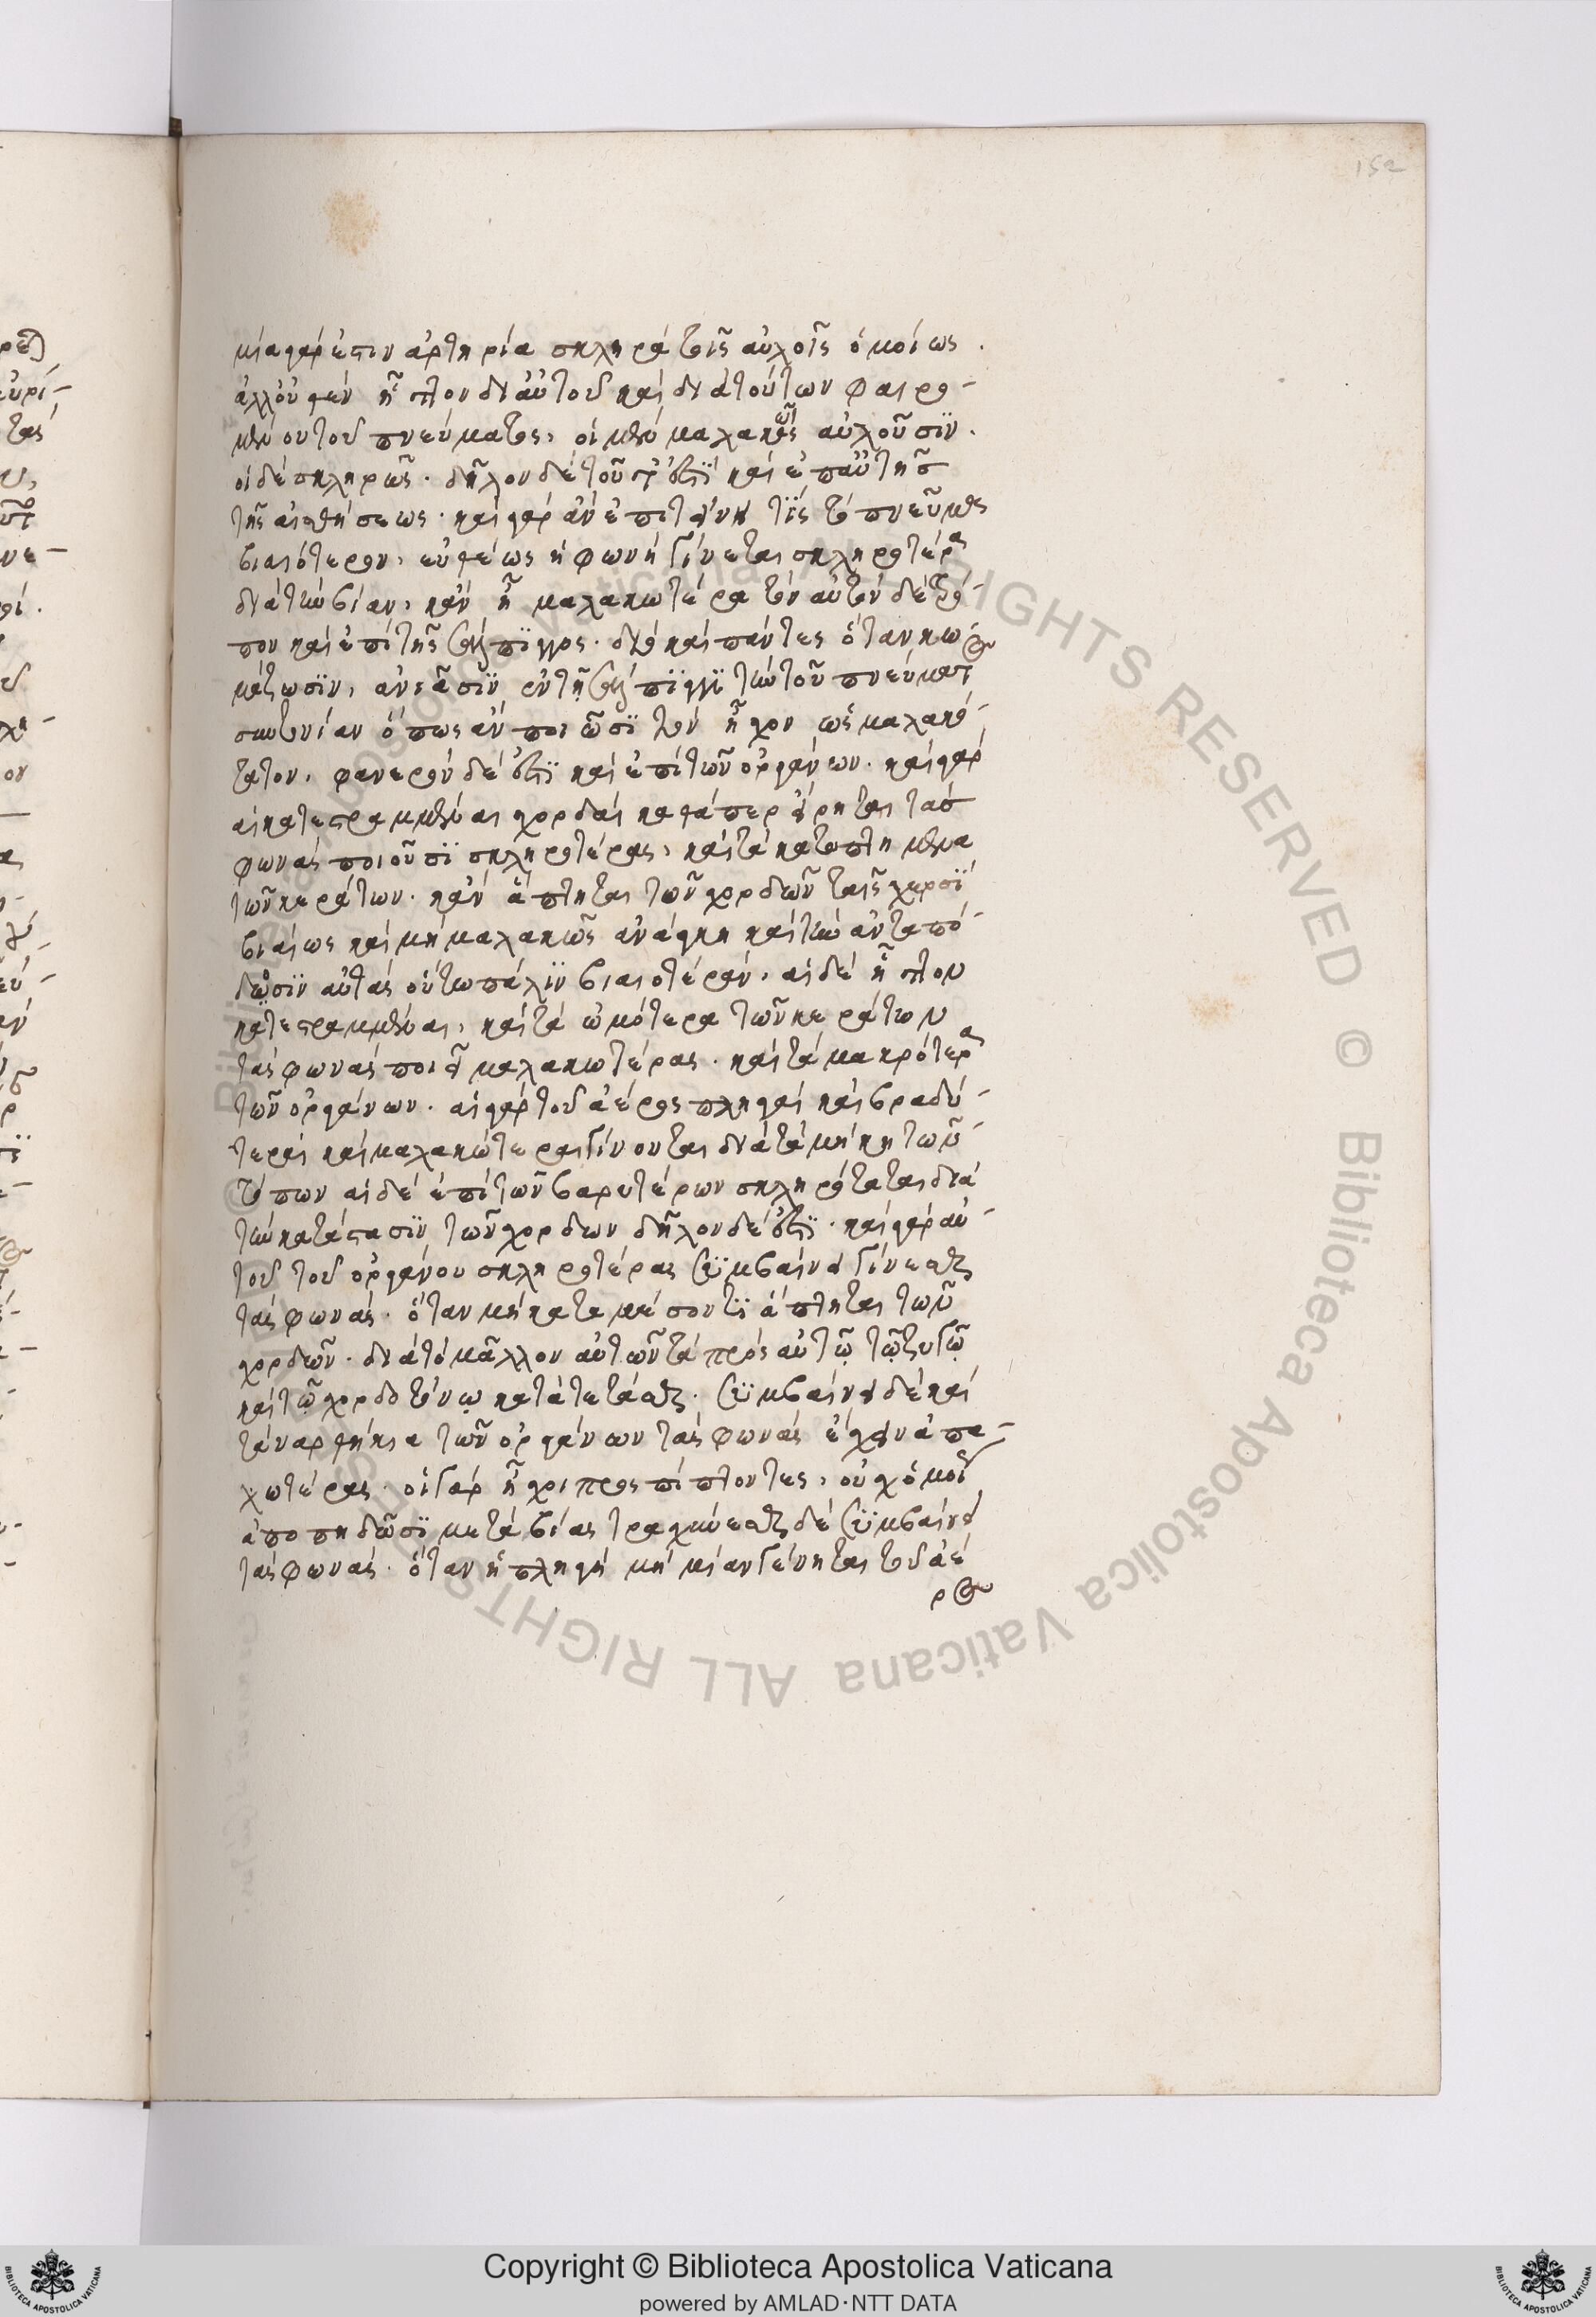 152
μία γάρ ἐστιν ἀρτηρία σκληρά τοῖς αὐλοῖς ὁμοίως.
ἀλλ' οὐθὲν ἧττον δι' αὐτοῦ καὶ διὰ τούτων φαιρο-
μένου τοῦ πνεύματος, οἱ μὲν μαλακῶς αὐλοῦσιν.
οἱ δὲ σκληρῶς. δῆλον δὲ τοῦτό ἐστι καὶ ἐπ' αὐτῆς
τῆς αἰσθήσεως. καὶ γὰρ ἂν ἐπιτείνῃ τις τὸ πνεῦμα
βιαιότερον, εὐθέως ἡ φωνὴ γίνεται σκληροτέρα
διὰ τὴν βίαν, κἂν ᾖ μαλακωτέρα τὸν αὐτὸν δὲ τρό-
πον καὶ ἐπὶ τῆς σάλπιγγος. διὸ καὶ πάντες ὅταν κω-
μάζωσιν, ἀνιᾶσιν ἐν τῇ σάλπιγγι τὴν τοῦ πνεύματος
συντονίαν ὅπως ἂν ποιῶσι τὸν ἦχον ὡς μαλακό-
τατον, φανερὸν δέ ἐστι καὶ ἐπὶ τῶν ὀργάνων. καὶ γὰρ
αἱ κατεστραμμέναι χορδαὶ καθάπερ εἴρηται τὰς
φωνὰς ποιοῦσι σκληροτέρας, καὶ τὰ κατοπτημένα
τῶν κεράτων. κἂν ἅπτηται τῶν χορδῶν ταῖς χερσὶ
βιαίως καὶ μὴ μαλακῶς ἀνάγκη καὶ τὴν ἀνταπό-
δωσιν αὐτὰς οὕτω πάλιν βιαιοτέραν, αἱ δὲ ἧττον
κατεστραμμέναι, καὶ τὰ ὠμότερα τῶν κεράτων
τὰς φωνὰς ποιεῖ μαλακωτέρας. καὶ τὰ μακρότερα
τῶν ὀργάνων. αἱ γὰρ τοῦ ἀέρος πληγαὶ καὶ βραδύ-
τεραι καὶ μαλακώτεραι γίνονται διὰ τὰ μήκη τῶν
τόπων αἱ δὲ ἐπὶ τῶν βαρυτέρων σκληρόταται διὰ
τὴν κατάστασιν τῶν χορδων δῆλον δέ ἐστι. καὶ γὰρ αὐ-
τοῦ τοῦ ὀργάνου σκληροτέρας συμβαίνει γίνεσθαι
τὰς φωνάς. ὅταν μὴ κατὰ μέσον τις ἅπτηται τῶν
χορδῶν. διὰ τὸ μᾶλλον αὐτῶν τὰ πρὸς αὐτῷ τῷ ζυγῷ
καὶ τῷ χορδοτόνῳ κατατετάσθαι. συμβαίνει δὲ καὶ
τὰ ναρθήκια τῶν ὀργάνων τὰς φωνὰς ἔχειν ἁπα-
λωτέρας. οἱ γὰρ ἦχοι προσπίπτοντες, οὐχ ὁμοίως
ἀποπηδῶσι μετὰ βίας τραχύνεσθαι δὲ συμβαίνει
τὰς φωνάς. ὅταν ἡ πληγὴ μὴ μία γένηται τοῦ ἀέ
ρος
Copyright © Biblioteca Apostolica Vaticana
powered by AMLAD·NTT DATA